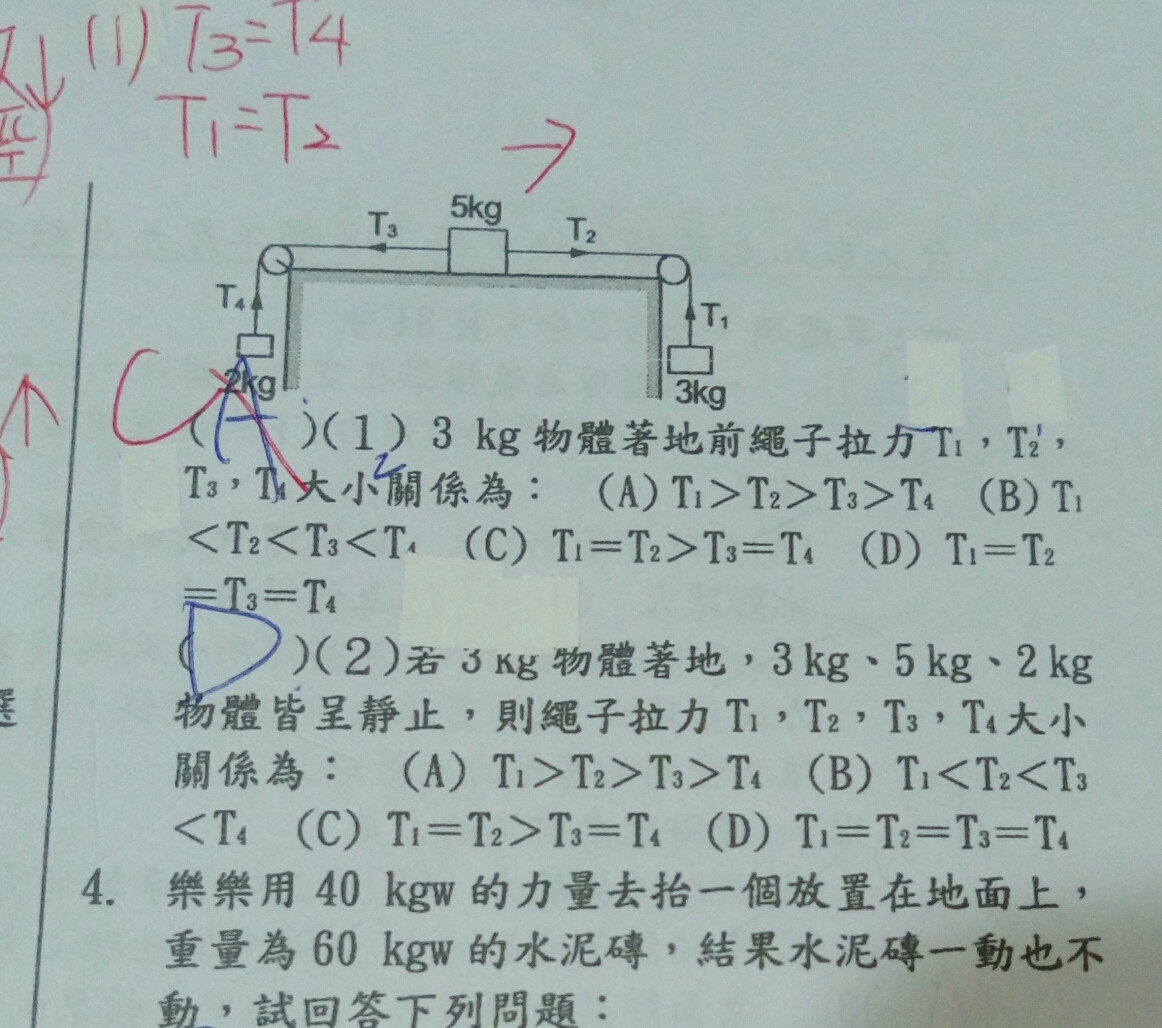 (1) T3=T4
T1=T2
→
5kg
T3
T2
T4
T1
2kg
3kg
C
(A)(1) 3 kg 物體著地前繩子拉力 T1，T2，
T3，T4 大小關係為： (A) T1>T2>T3>T4 (B) T1
<T2<T3<T4 (C) T1=T2>T3=T4 (D) T1=T2
=T3=T4
(D)(2)若 3 kg 物體著地，3 kg、5 kg、2 kg
選
物體皆呈靜止，則繩子拉力 T1，T2，T3，T4 大小
關係為： (A) T1>T2>T3>T4 (B) T1<T2<T3
<T4 (C) T1=T2>T3=T4 (D) T1=T2=T3=T4
4. 樂樂用 40 kgw 的力量去抬一個放置在地面上，
重量為 60 kgw 的水泥磚，結果水泥磚一動也不
動，試回答下列問題：